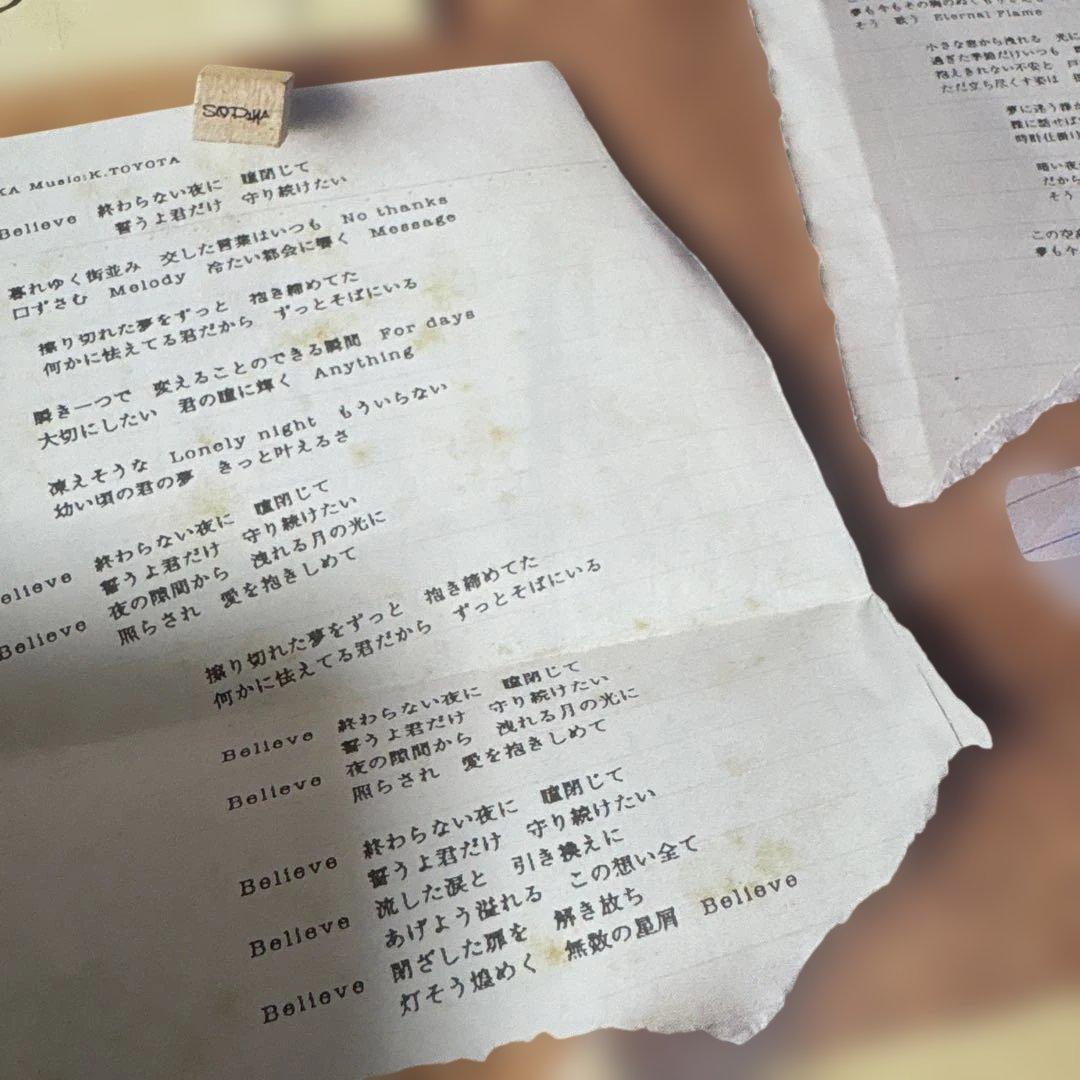 SODAYA
KA Music:K.TOYOTA
Believe 終わらない夜に 瞳閉じて
誓うよ君だけ 守り続けたい
暮れゆく街並み 交した言葉はいつも No thanks
口ずさむ Melody 冷たい都会に響く Message
擦り切れた夢をずっと 抱き締めてた
何かに怯えてる君だから ずっとそばにいる
瞬き一つで 変えることのできる瞬間 For days
大切にしたい 君の瞳に輝く Anything
凍えそうな Lonely night もういらない
幼い頃の君の夢 きっと叶えるさ
elieve 終わらない夜に 瞳閉じて
誓うよ君だけ 守り続けたい
Believe 夜の隙間から 洩れる月の光に
照らされ 愛を抱きしめて
擦り切れた夢をずっと 抱き締めてた
何かに怯えてる君だから ずっとそばにいる
Believe 終わらない夜に 瞳閉じて
誓うよ君だけ 守り続けたい
Believe 夜の隙間から 洩れる月の光に
照らされ 愛を抱きしめて
Believe 終わらない夜に 瞳閉じて
誓うよ君だけ 守り続けたい
Believe 流した涙と 引き換えに
あげよう溢れる この想い全て
Believe 閉ざした扉を 解き放ち
灯そう煌めく 無数の星屑 Believe
夢も今もその胸のぬくもりさえも
そう 歌う Eternal Flame
小さな窓から洩れる 光に
過ぎた季節だけいつも
抱えきれない不安と
ただ立ち尽くす姿は
夢に迷う誰か
誰に話せば
時計仕掛け
暗い夜
だから
そう
この空
夢も今